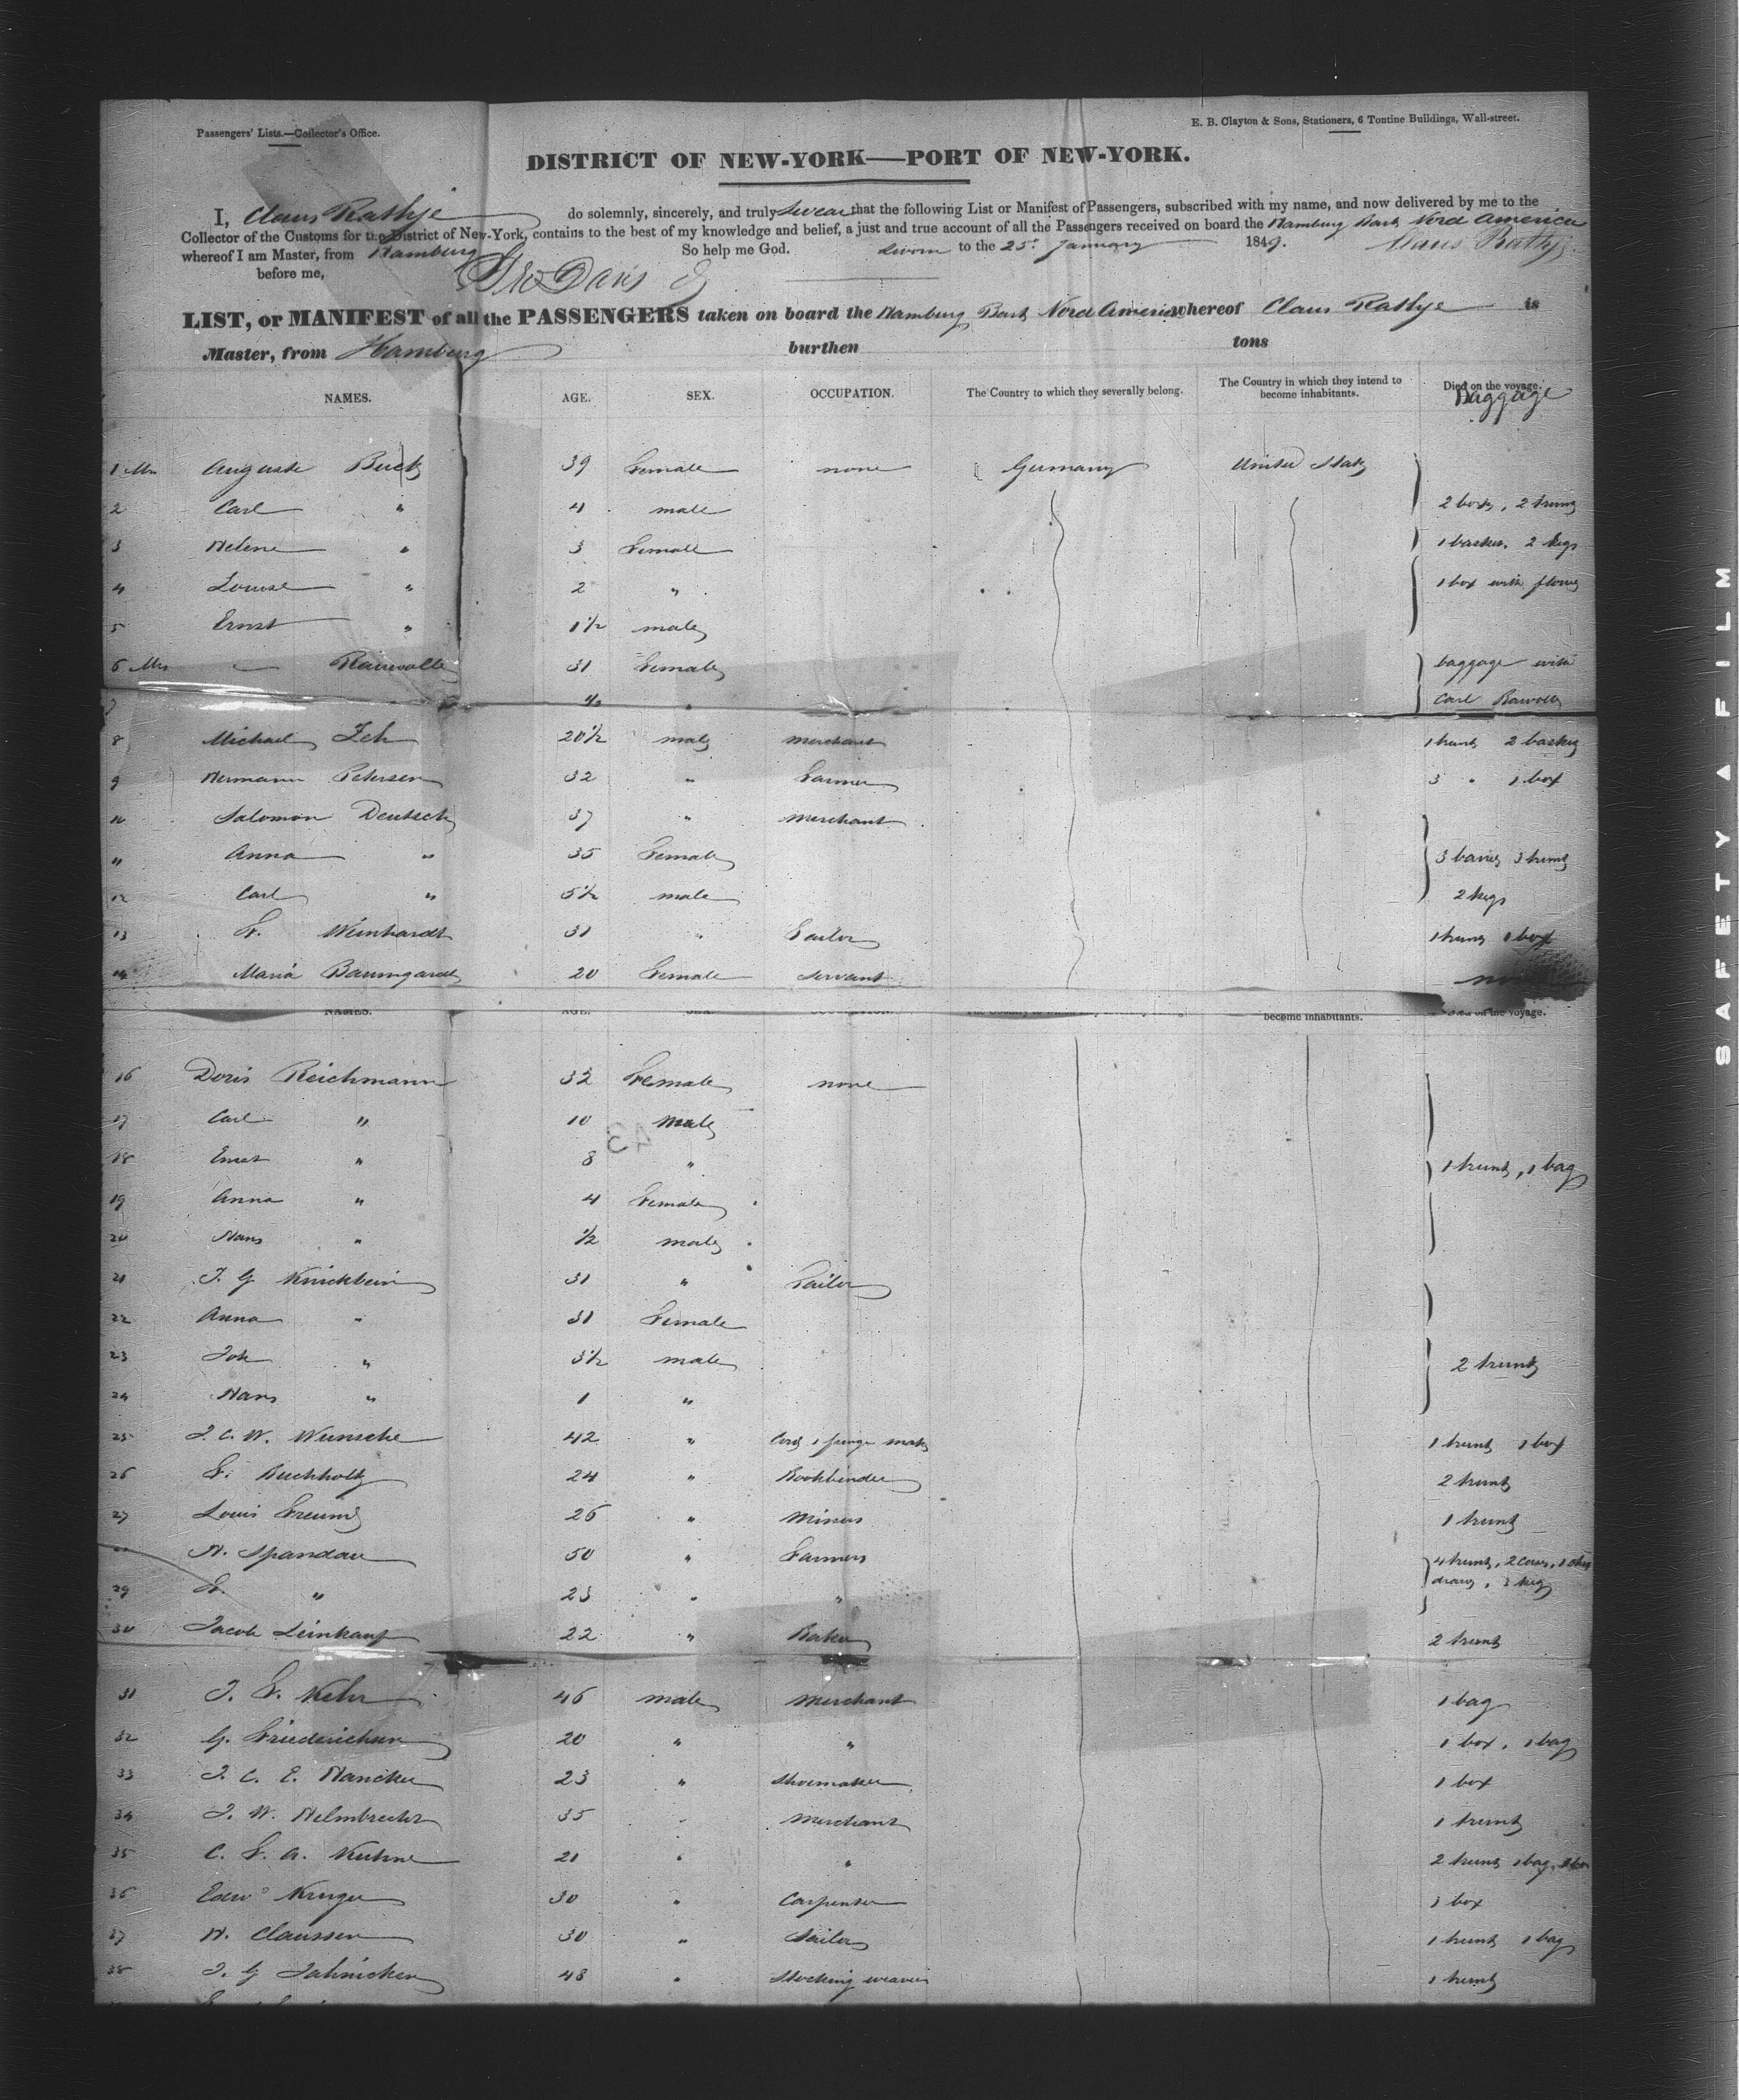 Passengers' Lists.—Collector's Office.
E. B. Clayton & Sons, Stationers, 6 Tontine Buildings, Wall-street.
DISTRICT OF NEW-YORK—PORT OF NEW-YORK.
I, Claus Rathje do solemnly, sincerely, and truly swear that the following List or Manifest of Passengers, subscribed with my name, and now delivered by me to the
Collector of the Customs for the District of New-York, contains to the best of my knowledge and belief, a just and true account of all the Passengers received on board the Hamburg Bark Nord America
whereof I am Master, from Hamburg So help me God. Sworn to the 25. January 1849. Claus Rathje
before me,
LIST, or MANIFEST of all the PASSENGERS taken on board the Hamburg Bark Nord America whereof Claus Rathje is
Master, from Hamburg burthen tons
NAMES. AGE. SEX. OCCUPATION. The Country to which they severally belong. The Country in which they intend to become inhabitants. Died on the voyage. Baggage
1 Mrs Auguste Buck 39 Female none Germany United States
2 Carl " 4 male 2 boxes, 2 trunks
3 Helene " 3 Female 1 basket, 2 kegs
4 Louise " 2 " 1 box with
5 Ernst " 1½ male
6 Mrs 31 Female baggage with
7 4 " Carl
8 Michael Zeh 20½ male merchant 1 trunk 2 baskets
9 Hermann Petersen 32 " Farmer 3 " 1 box
10 Salomon Deutsch 37 " merchant
11 Anna " 35 Female 3 3 trunks
12 Carl " 5½ male 2 kegs
13 F. Weinhardt 31 " Tailor 1 trunk 1 box
14 Maria Baumgardt 20 Female servant
NAMES. AGE. become inhabitants. on the voyage.
16 Doris Reichmann 32 Female none
17 Carl " 10 male
43
18 Ernst " 8 " 1 trunk, 1 bag
19 Anna " 4 Female
20 Hans " ½ male
21 J. G Knickbein 31 " Tailor
22 Anna " 31 Female
23 Joh " 3½ male 2 trunks
24 Hans " 1 "
25 J. C. W. Wunsche 42 " 1 trunk 1 box
26 F. Buchholtz 24 " Bookbinder 2 trunks
27 Louis Freund 26 " Miner 1 trunk
H. Spandau 50 " Farmers 4 trunks, 2
29 F. " 23 " "
30 Jacob Leinkauf 22 " Baker 2 trunks
31 J. F. Kehr 46 male merchant 1 bag
32 G. Friederichsen 20 " " 1 box, 1 bag
33 J. C. E. Hancker 23 " Shoemaker 1 box
34 J. W. Helmbrecht 35 " Merchant 1 trunk
35 C. F. A. Kuhne 21 " " 2 trunks 1 bag,
36 Edwd Kruger 30 " Carpenter 1 box
37 H. Claussen 30 " Sailor 1 trunk 1 bag
38 J. G Jahnicken 48 " Stocking weaver 1 trunk
SAFETY A FILM